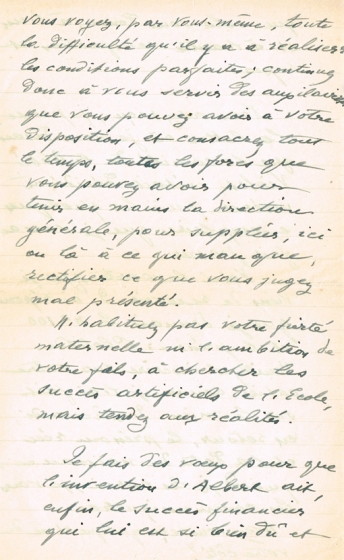 vous voyez, par vous-même, toute
la difficulté qu'il y a à réaliser
les conditions parfaites; continuez
donc à vous servir des auxiliaires
que vous pouvez avoir à votre
disposition, et consacrez tout
le temps, toutes les forces que
vous pouvez avoir pour
tenir en mains la direction
générale, pour suppléer, ici
ou là à ce qui manque,
rectifier ce que vous jugez
mal présenté.
N'habituez pas votre fierté
maternelle ni l'ambition de
votre fils, à chercher les
succès artificiels de l'Ecole,
mais tendez aux réalités.
Je fais des vœux pour que
l'invention d'Albert ait,
enfin, le succès financier
qui lui est si bien dû et